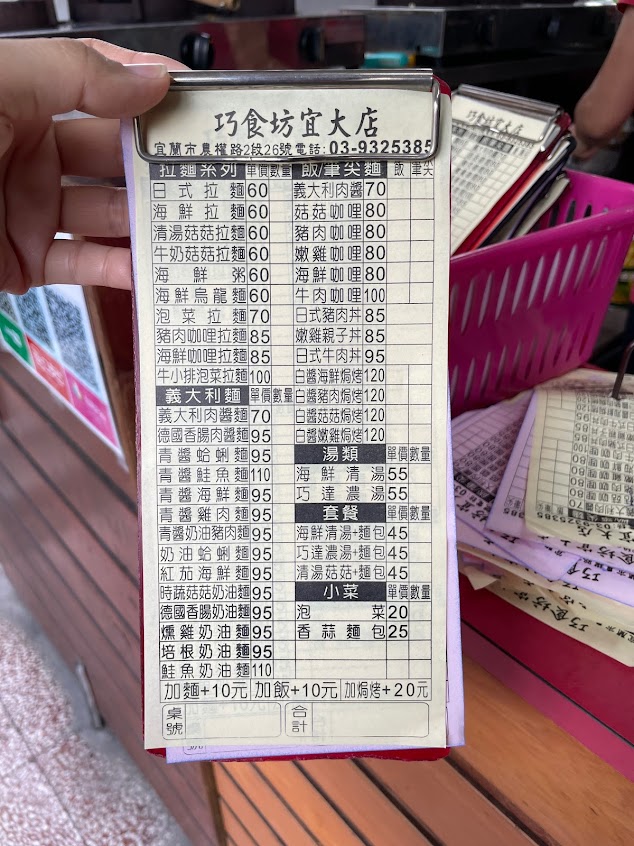 巧食坊宜大店
宜蘭市農權路2段26號電話:03-9325385
拉麵系列 單價 數量
日式拉麵 60
海鮮拉麵 60
清湯菇菇拉麵 60
牛奶菇菇拉麵 60
海鮮粥 60
海鮮烏龍麵 60
泡菜拉麵 70
豬肉咖哩拉麵 85
海鮮咖哩拉麵 85
牛小排泡菜拉麵 100
義大利麵 單價 數量
義大利肉醬麵 70
德國香腸肉醬麵 95
青醬蛤蜊麵 95
青醬鮭魚麵 110
青醬海鮮麵 95
青醬雞肉麵 95
青醬奶油豬肉麵 95
奶油蛤蜊麵 95
紅茄海鮮麵 95
時蔬菇菇奶油麵 95
德國香腸奶油麵 95
燻雞奶油麵 95
培根奶油麵 95
鮭魚奶油麵 110
飯/筆尖麵 單價 飯 筆尖
義大利肉醬 70
菇菇咖哩 80
豬肉咖哩 80
嫩雞咖哩 80
海鮮咖哩 80
牛肉咖哩 100
日式豬肉丼 85
嫩雞親子丼 85
日式牛肉丼 95
白醬海鮮焗烤 120
白醬豬肉焗烤 120
白醬菇菇焗烤 120
白醬嫩雞焗烤 120
湯類 單價 數量
海鮮清湯 55
巧達濃湯 55
套餐 單價 數量
海鮮清湯+麵包 45
巧達濃湯+麵包 45
清湯菇菇+麵包 45
小菜 單價 數量
泡菜 20
香蒜麵包 25
加麵+10元 加飯+10元 加焗烤+20元
桌號 合計
巧食坊宜大店